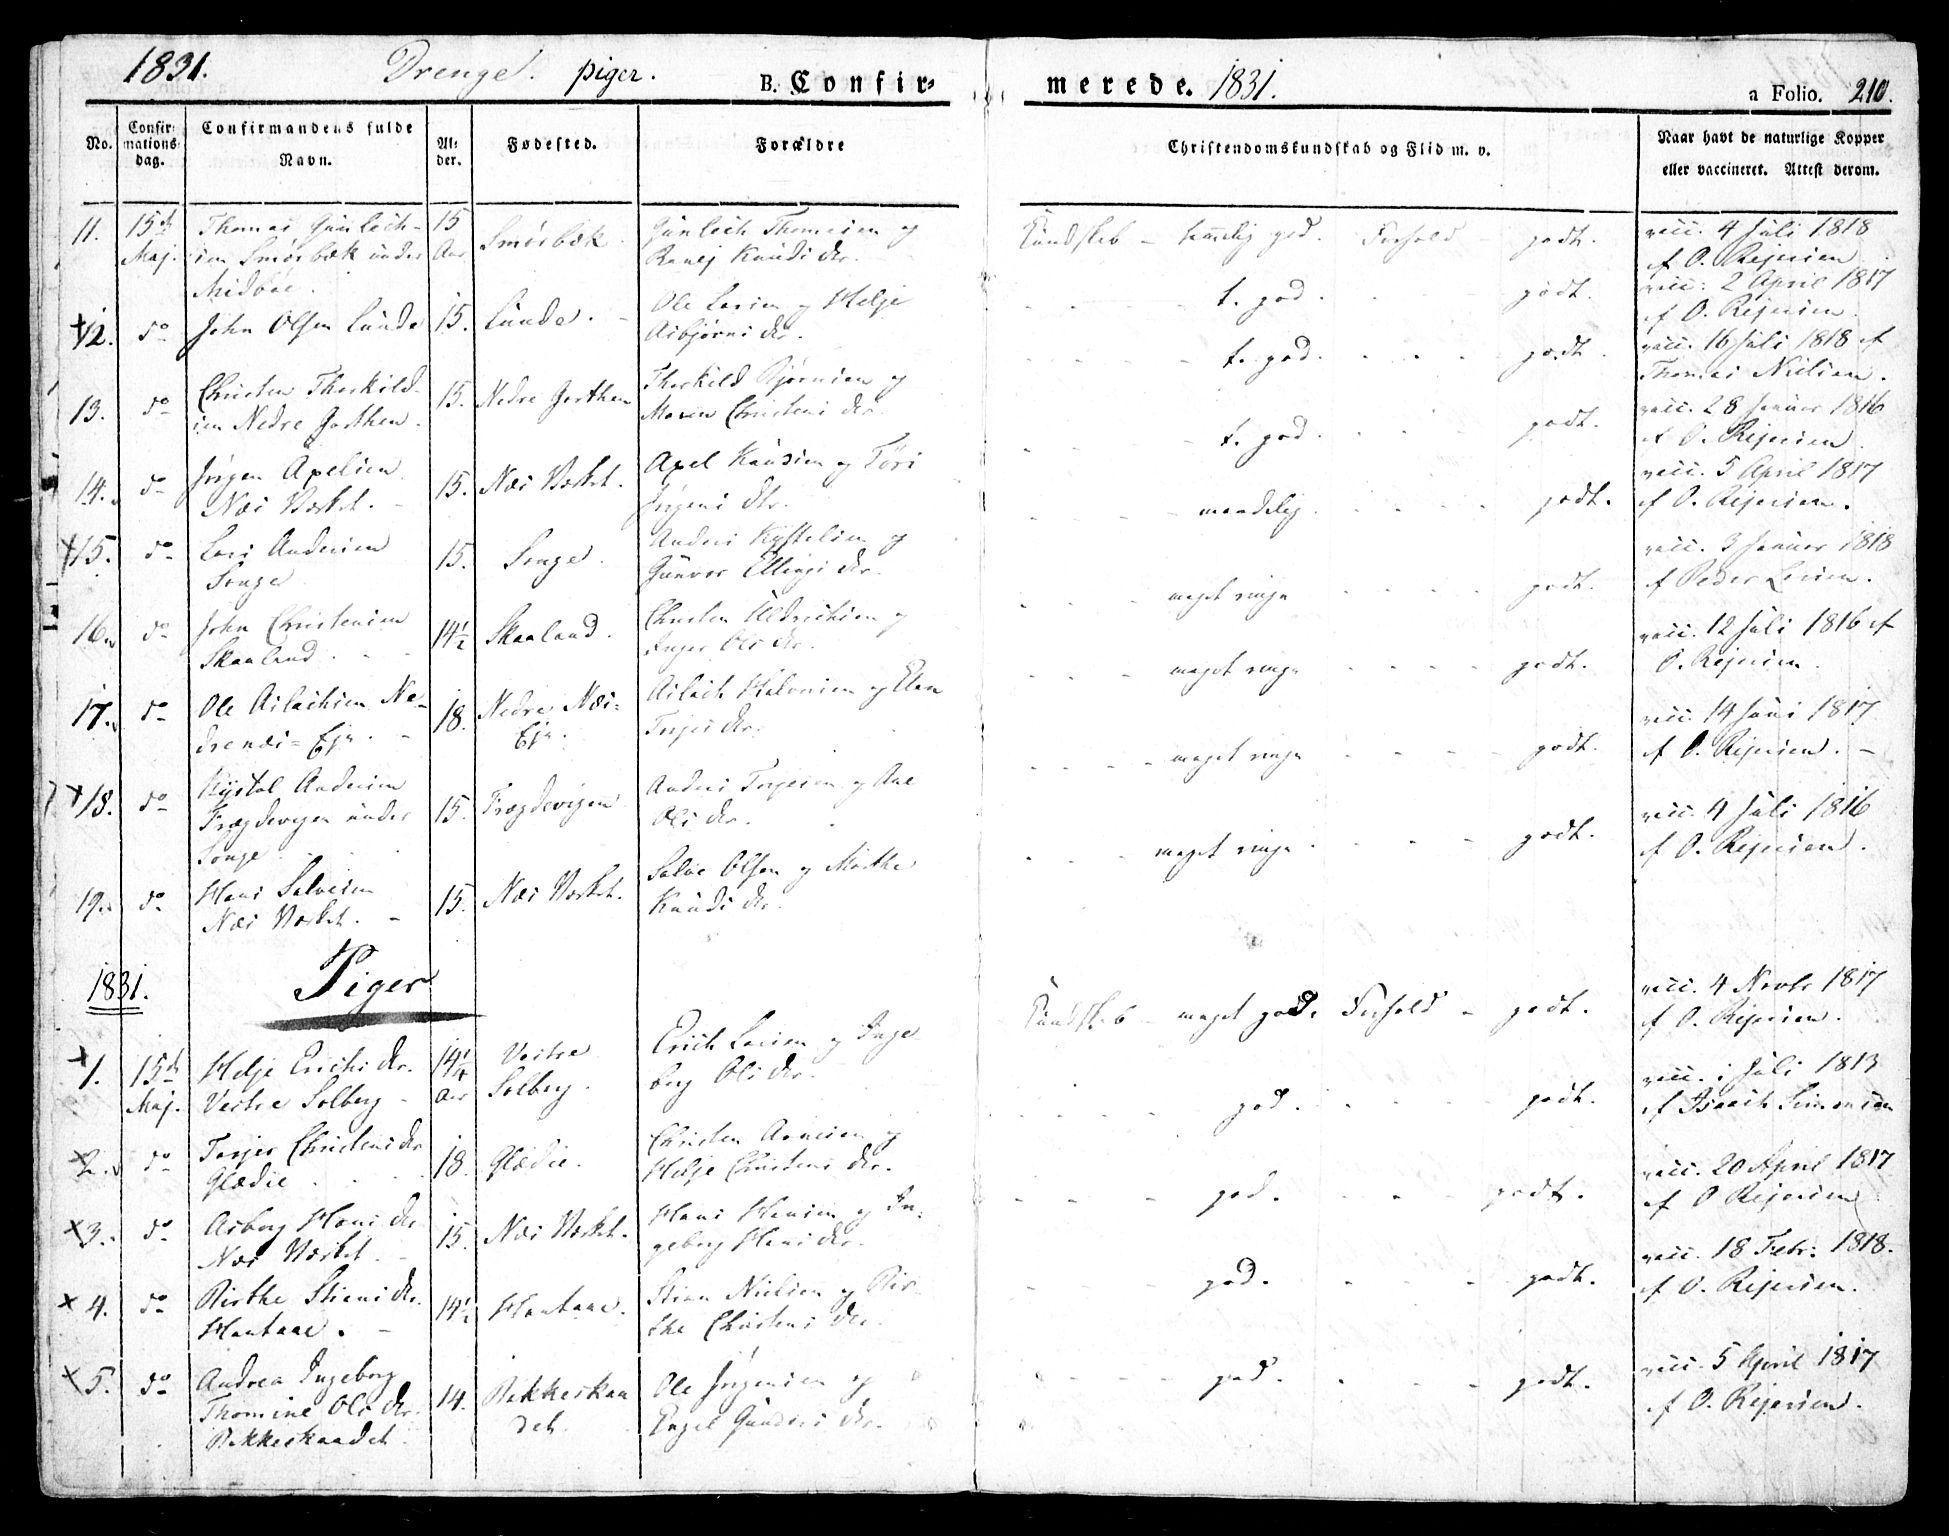 1831. Drenge. piger. B. Confir=
merede. 1831. a Folio. 210.
No. Confir=mations=dag. Confirmandens fulde Navn. Al=der. Fødested. Forældre Christendomskundskab og Flid m. v. Naar havt de naturlige Kopper eller vaccineret. Attest derom.
11. 15de Maj. Thomas Gunleich-
sen Smørbæk under
Midbøe.
15 Aar Smørbæk. Gunleich Thomesen og
Knudsdtr.
Kundskab - temmelig god. Forhold godt. vacc. 4 Juli 1818
af O. Rejersen
+12. do John Olsen Lunde 15. Lunde. Ole Larsen og Helje
Asbjørnsdtr.
t. god. godt. vacc. 2 April 1817
af O. Rejersen.
13. do Christen Therkild-
sen Nedre Goothen.
15. Nedre Goothen Therkild Bjørnsen og
Maren Christensdtr.
t. god. godt. vacc. 16 Juli 1818 af
Thomas Nielsen.
14. do Jørgen Axelsen
Næs Værket.
15. Næs Værket. Axel Knudsen og Tøri
Jørgensdtr.
t. god. godt. vacc. 28 Januar 1816
af O. Rejersen
+15. do Lars Andersen
Songe
15. Songe. Anders Kystelsen og
Gunvor Ellingsdtr.
maadelig godt. vacc. 5 April 1817
af O. Rejersen.
16. do John Christensen
Skaaland.
14½ Skaaland. Christen Uldrichsen og
Inger Olsdtr.
meget ringe godt. vacc. 3 Januar 1818
af Peder Larsen.
17. do Ole Aslachsen Ne-
drenæs=Eje.
18. Nedre Næs=
Eje.
Aslach Halvorsen og Elen
Terjesdtr.
meget ringe godt. vacc. 12 Juli 1816 af
O. Rejersen
+18. do Kystol Andersen
Frægdevigen under
Songe
15. Frægdevigen Anders Terjesen og Ane
Olsdtr.
meget ringe godt. vacc. 14 Juni 1817
af O. Rejersen.
19. do Hans Salvesen
Næs Værket.
15. Næs Værket. Salve Olsen og Marthe
Knudsdtr.
meget ringe godt. vacc. 4 Juli 1816
af O. Rejersen.
1831. Piger
+1. 15de Maj. Helje Erichsdtr.
Vestre Solberg
14¼ Aar Vestre
Solberg.
Erich Larsen og Inge
borg Olsdtr.
Kundskab - meget god. Forhold - godt. vacc. 4 Novbr 1817
af O. Rejersen.
+2. do Terjer Christensdtr
Glædie
18. Glædie. Christen Arnesen og
Helje Christensdtr.
god. godt. vacc. 1 Juli 1813
af Isaach Simonsen
+3. do Asborg Hansdtr
Næs Værket.
15. Næs Værket. Hans Hansen og In-
geborg Hansdtr.
god. godt. vacc. 20 April 1817
af O Rejersen
+4. do Birthe Stiansdtr.
Hantaae.
14½ Hantaae. Stian Nielsen og Bir-
the Christensdtr.
god. godt. vacc. 18 Febr. 1818.
af O. Rejersen.
+5. do Andrea Ingeborg
Thomine Olsdtr.
Bakkeskaadet
14. Bakkeskaa
det.
Ole Jørgensen og
Engel Gundersdtr.
god. godt. vacc. 5 April 1817
af O. Rejersen.